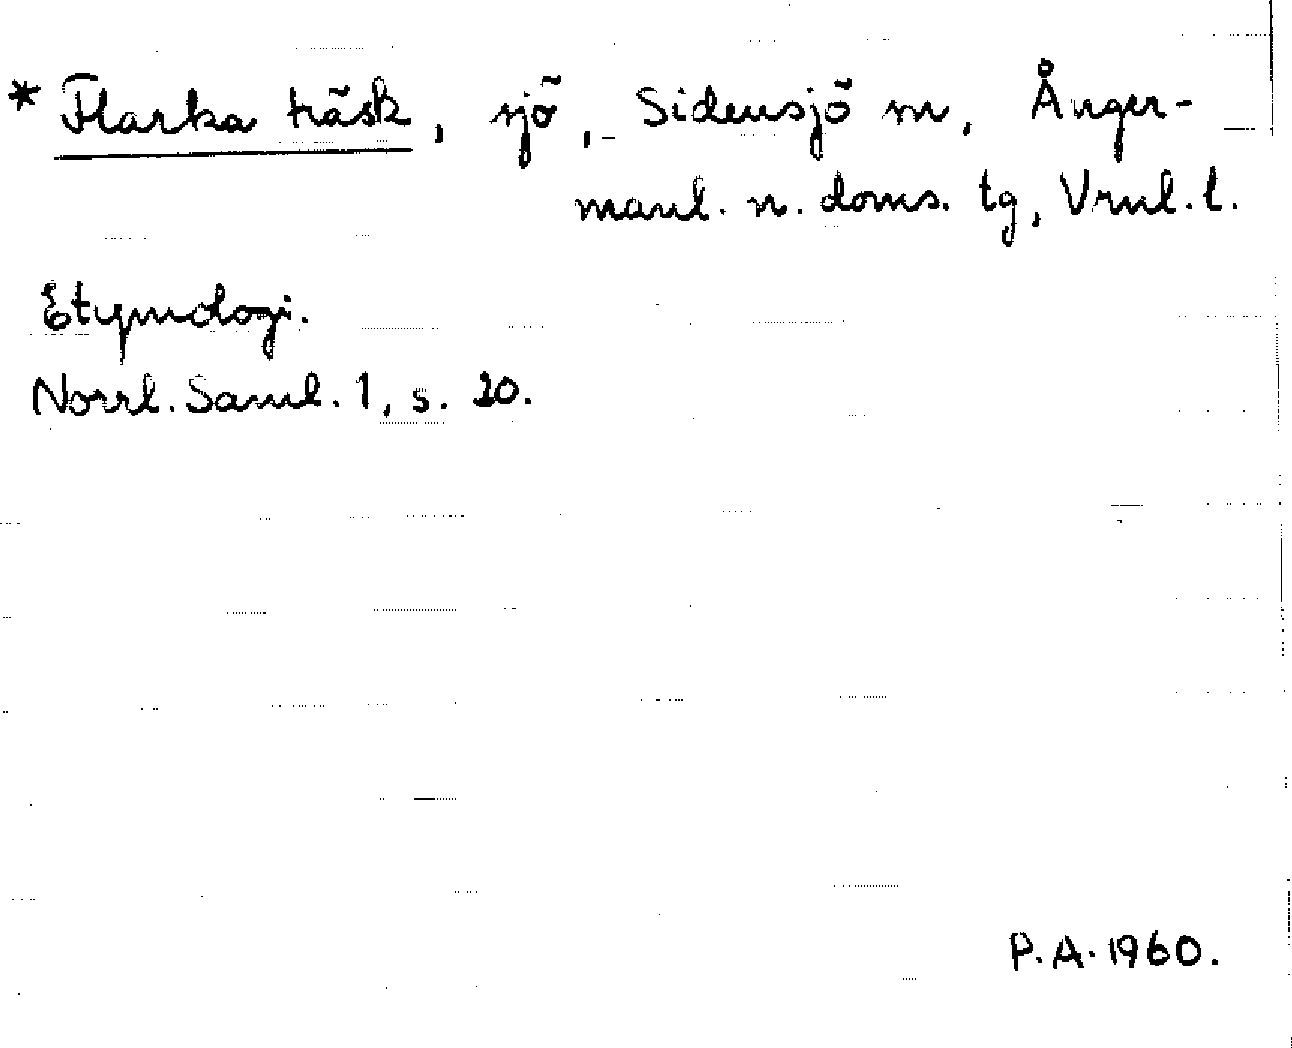 * Flarka träsk, sjö, Sidensjö sn, Ånger-
manl. n. doms. tg, Vrnl. l.
Etymologi.
Norrl. Saml. 1, s. 20.
P.A. 1960.